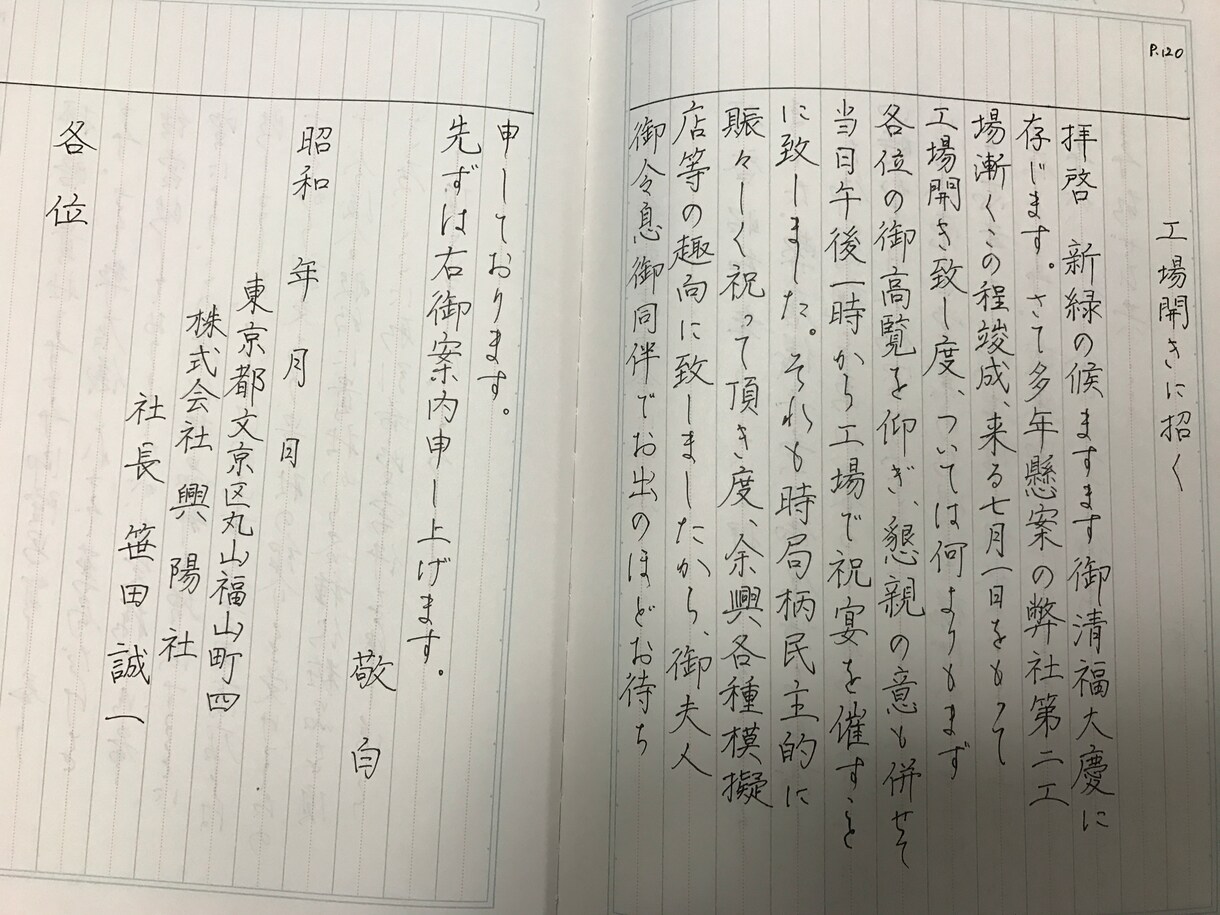 P.120
工場開きに招く
拝啓　新緑の候ますます御清福大慶に
存じます。さて多年懸案の弊社第二工
場漸くこの程竣成、来る七月一日をもって
工場開き致し度、ついては何よりもまず
各位の御高覧を仰ぎ、懇親の意も併せて
当日午後一時から工場で祝宴を催すこと
に致しました。それも時局柄民主的に
賑々しく祝って頂き度、余興各種模擬
店等の趣向に致しましたから、御夫人
御令息御同伴でお出のほどお待ち
申しております。
先ずは右御案内申し上げます。
敬白
昭和　年　月　日
東京都文京区丸山福山町四
株式会社　興陽社
社長　笹田誠一
各位